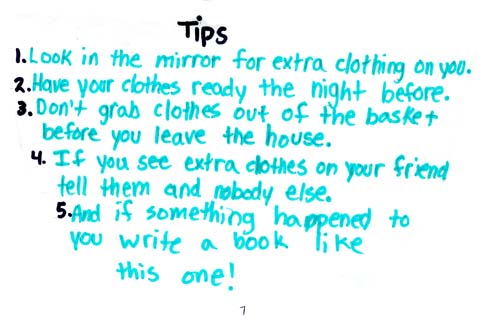 Tips
1. Look in the mirror for extra clothing on you.
2. Have your clothes ready the night before.
3. Don't grab clothes out of the basket
before you leave the house.
4. If you see extra clothes on your friend
tell them and nobody else.
5. And if something happened to
you write a book like
this one!
7